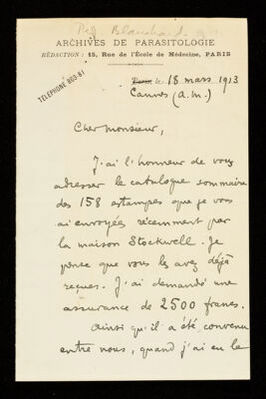 Prof Blanchard
ARCHIVES DE PARASITOLOGIE
RÉDACTION : 15, Rue de l'École de Médecine, PARIS
TÉLÉPHONE 803-81
Paris, le 18 mars 1913
Cannes (a. m.)
Cher Monsieur,
J'ai l'honneur de vous
adresser le catalogue sommaire
des 158 estampes que je vous
ai envoyées récemment par
la maison Stockwell. Je
pense que vous les avez déjà
reçues. J'ai demandé une
assurance de 2500 francs.
Ainsi qu'il a été convenu
entre nous, quand j'ai eu le